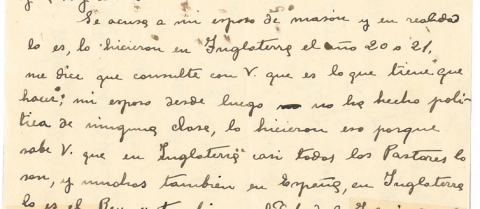 Se acusa a mi esposo de masón y en realidad
lo es, lo hicieron en Inglaterra el año 20 o 21,
me dice que consulte con V. que es lo que tiene que
hacer; mi esposo desde luego no ha hecho polí-
tica de ninguna clase, lo hicieron eso porque
sabe V. que en Inglaterra casi todos los Pastores lo
son, y muchos también en España, en Inglaterra
lo es el